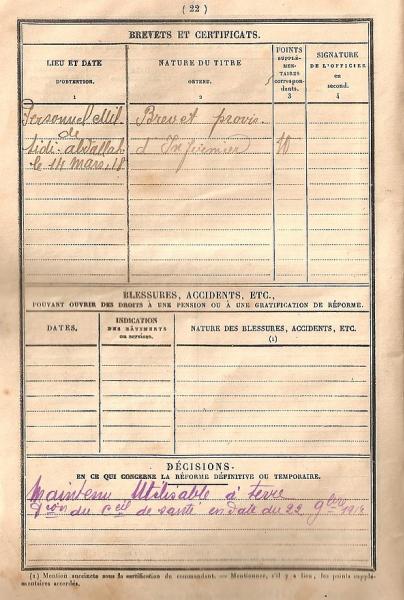 ( 22 )
BREVETS ET CERTIFICATS.
LIEU ET DATE
D'OBTENTION.
1
NATURE DU TITRE
OBTENU.
2
POINTS
SUPPLÉ-
MEN-
TAIRES
correspon-
dants.
3
SIGNATURE
DE L'OFFICIER
en
second.
4
Personnel Mil.
de
Sidi-Abdallah
le 14 Mars. 18
Brevet provis.
d'Infirmier
10
BLESSURES, ACCIDENTS, ETC.,
POUVANT OUVRIR DES DROITS À UNE PENSION OU À UNE GRATIFICATION DE RÉFORME.
DATES.
INDICATION
DES BÂTIMENTS
ou services.
NATURE DES BLESSURES, ACCIDENTS, ETC.
(1)
DÉCISIONS
EN CE QUI CONCERNE LA RÉFORME DÉFINITIVE OU TEMPORAIRE.
Maintenu Utilisable à terre
du Ceil de santé en date du 22 9bre
(1) Mention succincte sous la certification du commandant. — Mentionner, s'il y a lieu, les points supplé-
mentaires accordés.